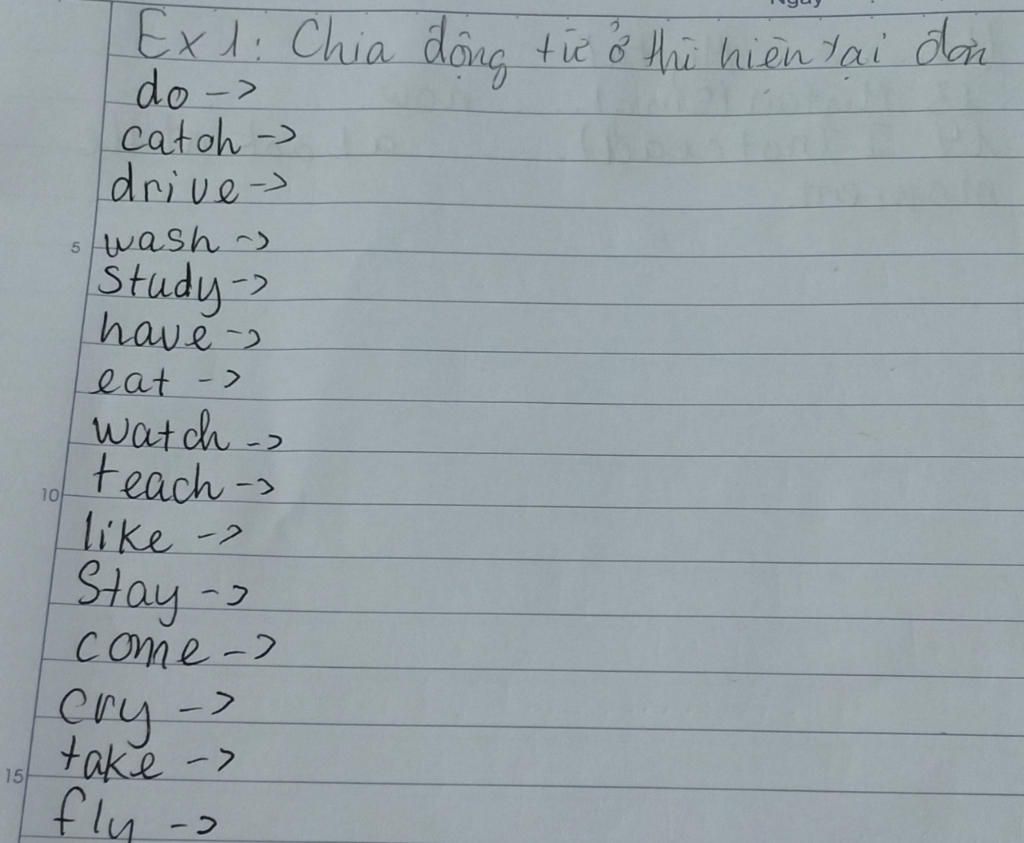 Ngày
Ex1: Chia động từ ở thì hiện tại đơn
do ->
catch ->
drive ->
5 wash ->
study ->
have ->
eat ->
watch ->
10 teach ->
like ->
Stay ->
come ->
cry ->
15 take ->
fly ->